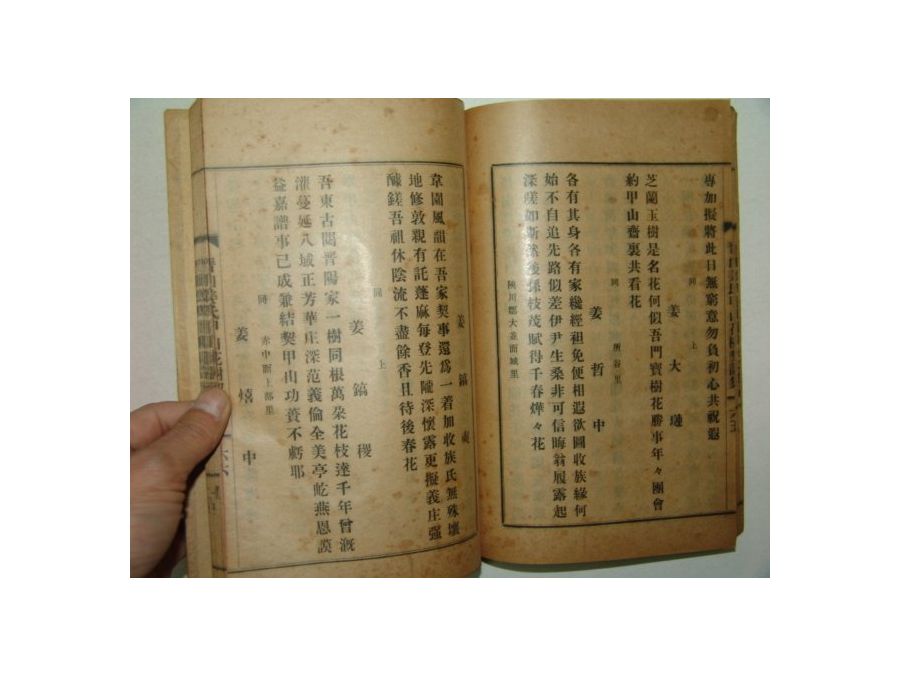 專加擬將此日無窮意勿負初心共祝遐
同 上
姜 大
芝蘭玉樹是名花何似吾門寶樹花勝事年々團會
約甲山齋裏共看花
同 所谷里
姜 哲 中
各有其身各有家纔經袒免便相遐欲圖收族緣何
始不自追先路似差伊尹生桑非可信晦翁履露起
深嗟如斯然後孫枝茂賦得千春燁々花
陜川郡大並面城里
姜 鎬
韋園風韻在吾家契事還爲一着加收族氏無殊壞
地修敦親有託蓬麻每登先隴深懷露更擬義庄强
醵鎈吾祖休陰流不盡餘香且待後春花
同 上
姜 鎬 稷
吾東古閥晋陽家一樹同根萬朶花枝達千年曾漑
灌蔓延八域正芳華庄深范義倫全美亭屹燕恩謨
益嘉譜事已成兼結契甲山功簣不虧耶
同 赤中面上部里
姜 熺 中